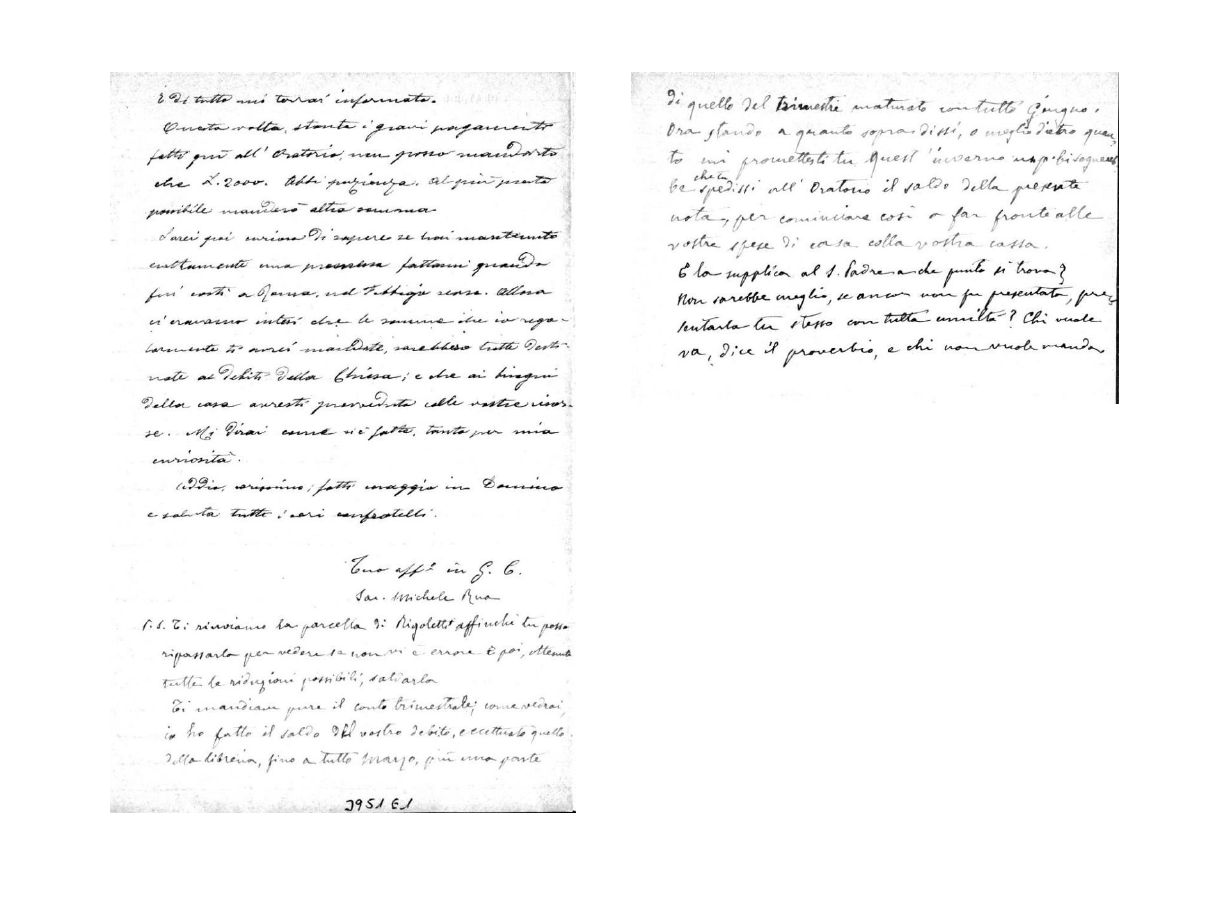 E di tutto mi terrai informato.
Questa volta, stante i gravi pagamenti
fatti qui all' Oratorio, non posso mandarti
che L. 2000. Abbi pazienza. Al più presto
possibile manderò altra somma
Sarei poi curioso di sapere se hai mantenuto
esattamente una promessa fattami quando
fui costì a Roma, nel Febbraio scorso. Allora
ci eravamo intesi che le somme che io rego-
larmente ti avrei mandate, sarebbero tutte desti-
nate ai debiti della Chiesa; e che ai bisogni
della casa avresti provveduto colle vostre risor-
se. Mi dirai come si è fatto, tanto per mia
curiosità.
Addio, carissimo; fatti coraggio in Domino
e saluta tutti i cari confratelli.
Tuo aff.º in G. C.
Sac. Michele Rua
P.S. Ti rinviamo la parcella di Rigoletti affinchè tu possa
ripassarla per vedere se non vi è errore E poi, ottenute
tutte le riduzioni possibili, saldarla
Ti mandiam pure il conto trimestrale; come vedrai,
io ho fatto il saldo del vostro debito, eccettuato quello
della libreria, fino a tutto Marzo, più una parte
J951 E1
di quello del trimestre maturato con tutto Giugno.
Ora stando a quanto sopra dissi, o meglio dietro quan-
to mi promettesti tu quest'inverno bisognereb
che tu
be spedissi all' Oratorio il saldo della presente
nota, per cominciare così a far fronte alle
vostre spese di casa colla vostra cassa.
E la supplica al S. Padre a che punto si trova?
Non sarebbe meglio, se ancor non fu presentata, pre-
sentarla tu stesso con tutta umiltà? Chi vuole
va, dice il proverbio, e chi non vuole manda